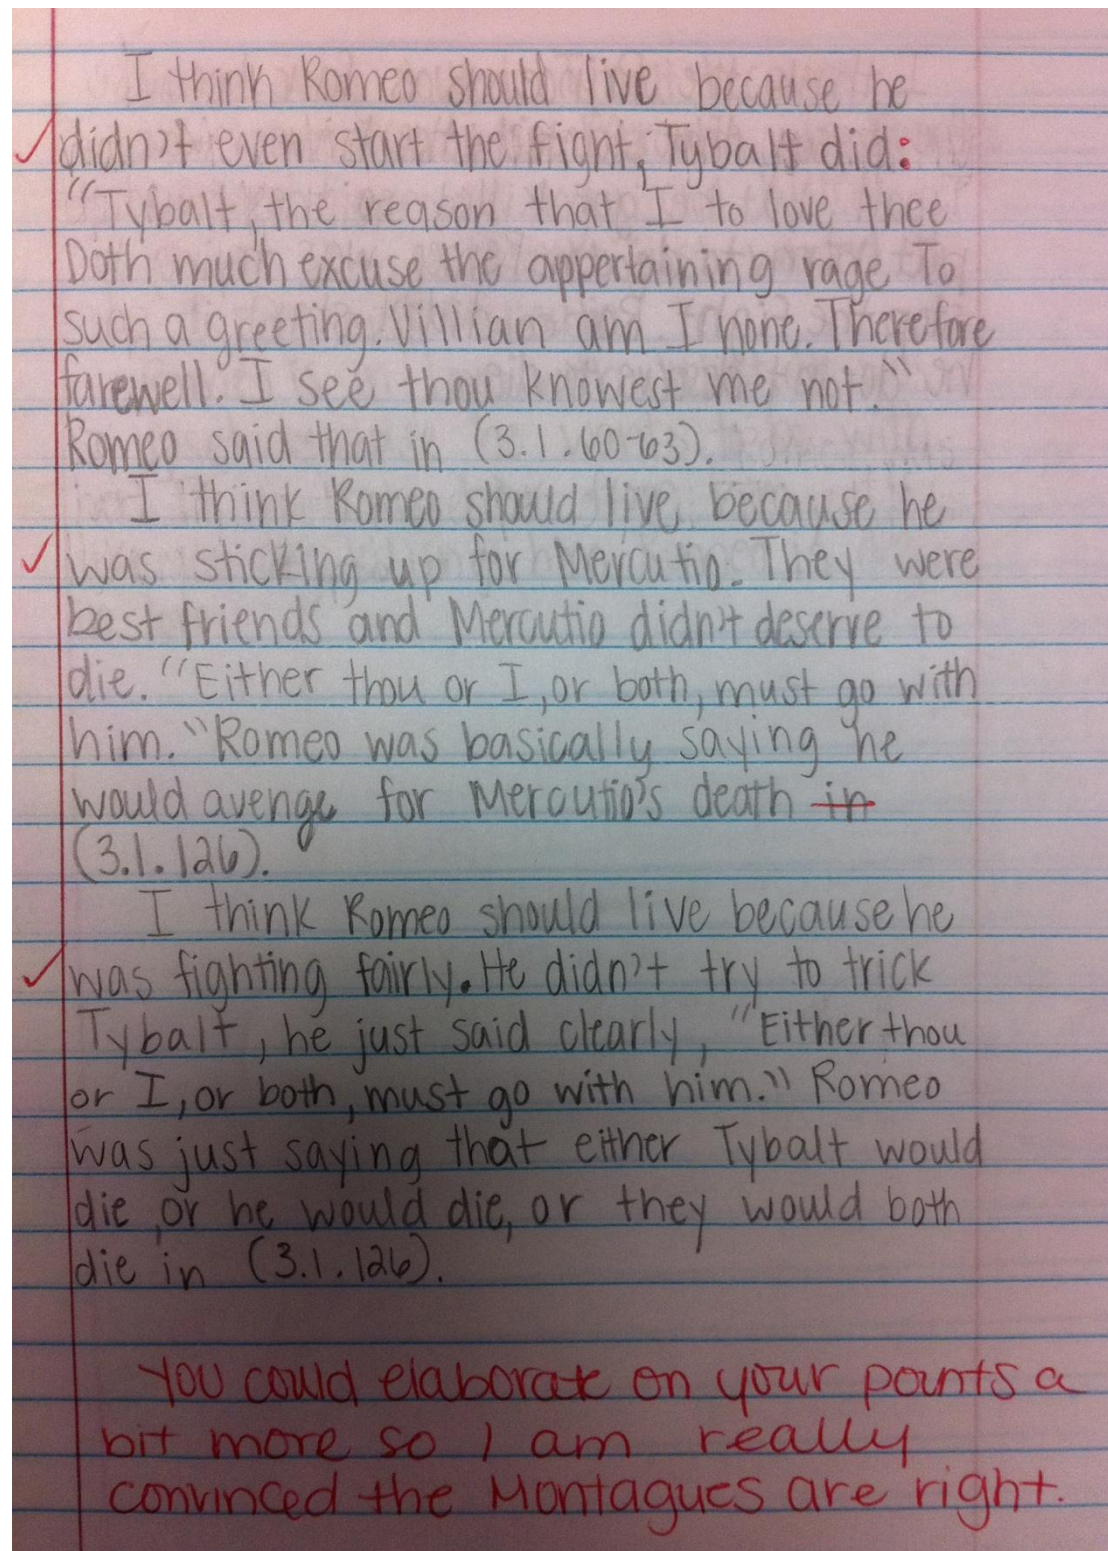 I think Romeo should live because he
didn't even start the fight; Tybalt did:
"Tybalt, the reason that I to love thee
Doth much excuse the appertaining rage To
such a greeting. Villian am I none. Therefore
farewell. I see thou knowest me not."
Romeo said that in (3.1.60-63).
I think Romeo should live because he
was sticking up for Mercutio. They were
best friends and Mercutio didn't deserve to
die. "Either thou or I, or both, must go with
him." Romeo was basically saying he
would avenge for Mercutio's death in
(3.1.126).
I think Romeo should live because he
was fighting fairly. He didn't try to trick
Tybalt, he just said clearly, "Either thou
or I, or both, must go with him." Romeo
was just saying that either Tybalt would
die, or he would die, or they would both
die in (3.1.126).
You could elaborate on your points a
bit more so I am really
convinced the Montagues are right.